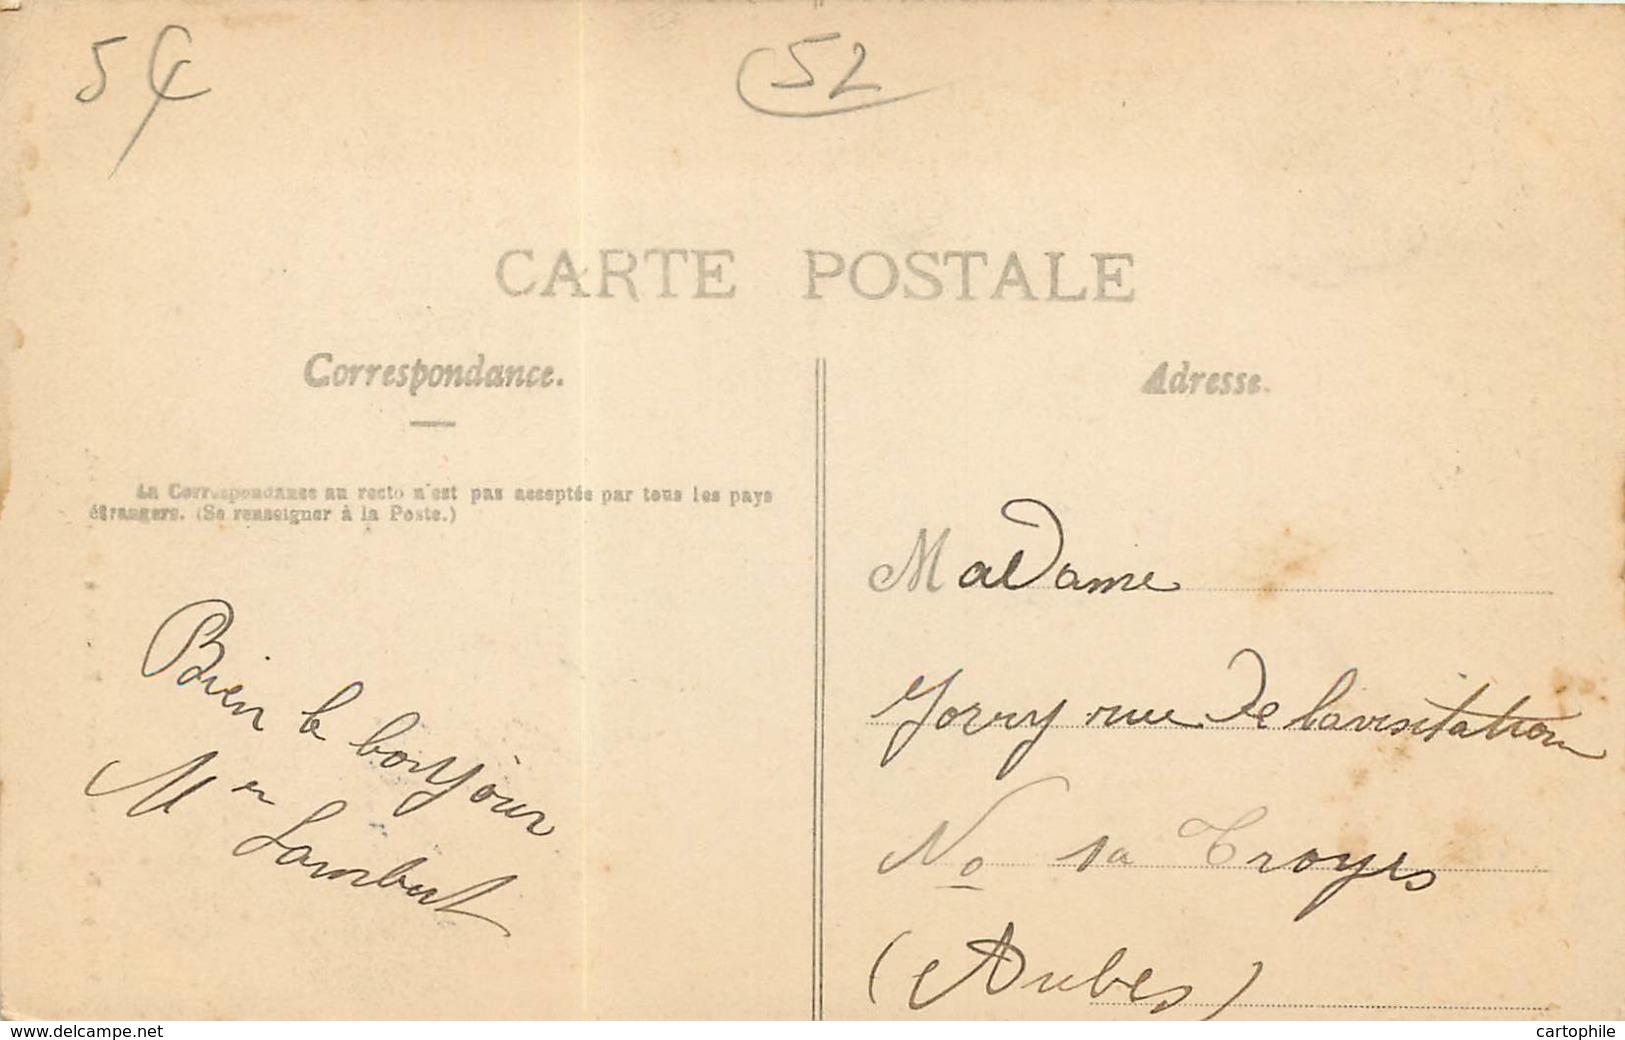 54
52
CARTE POSTALE
Correspondance.
Adresse.
La Correspondance au recto n'est pas acceptée par tous les pays
étrangers. (Se renseigner à la Poste.)
Bien le bonjour
Lambert
Madame
rue De lavisitation
No 1a Troyes
(Aubes)
www.delcampe.net
cartophile